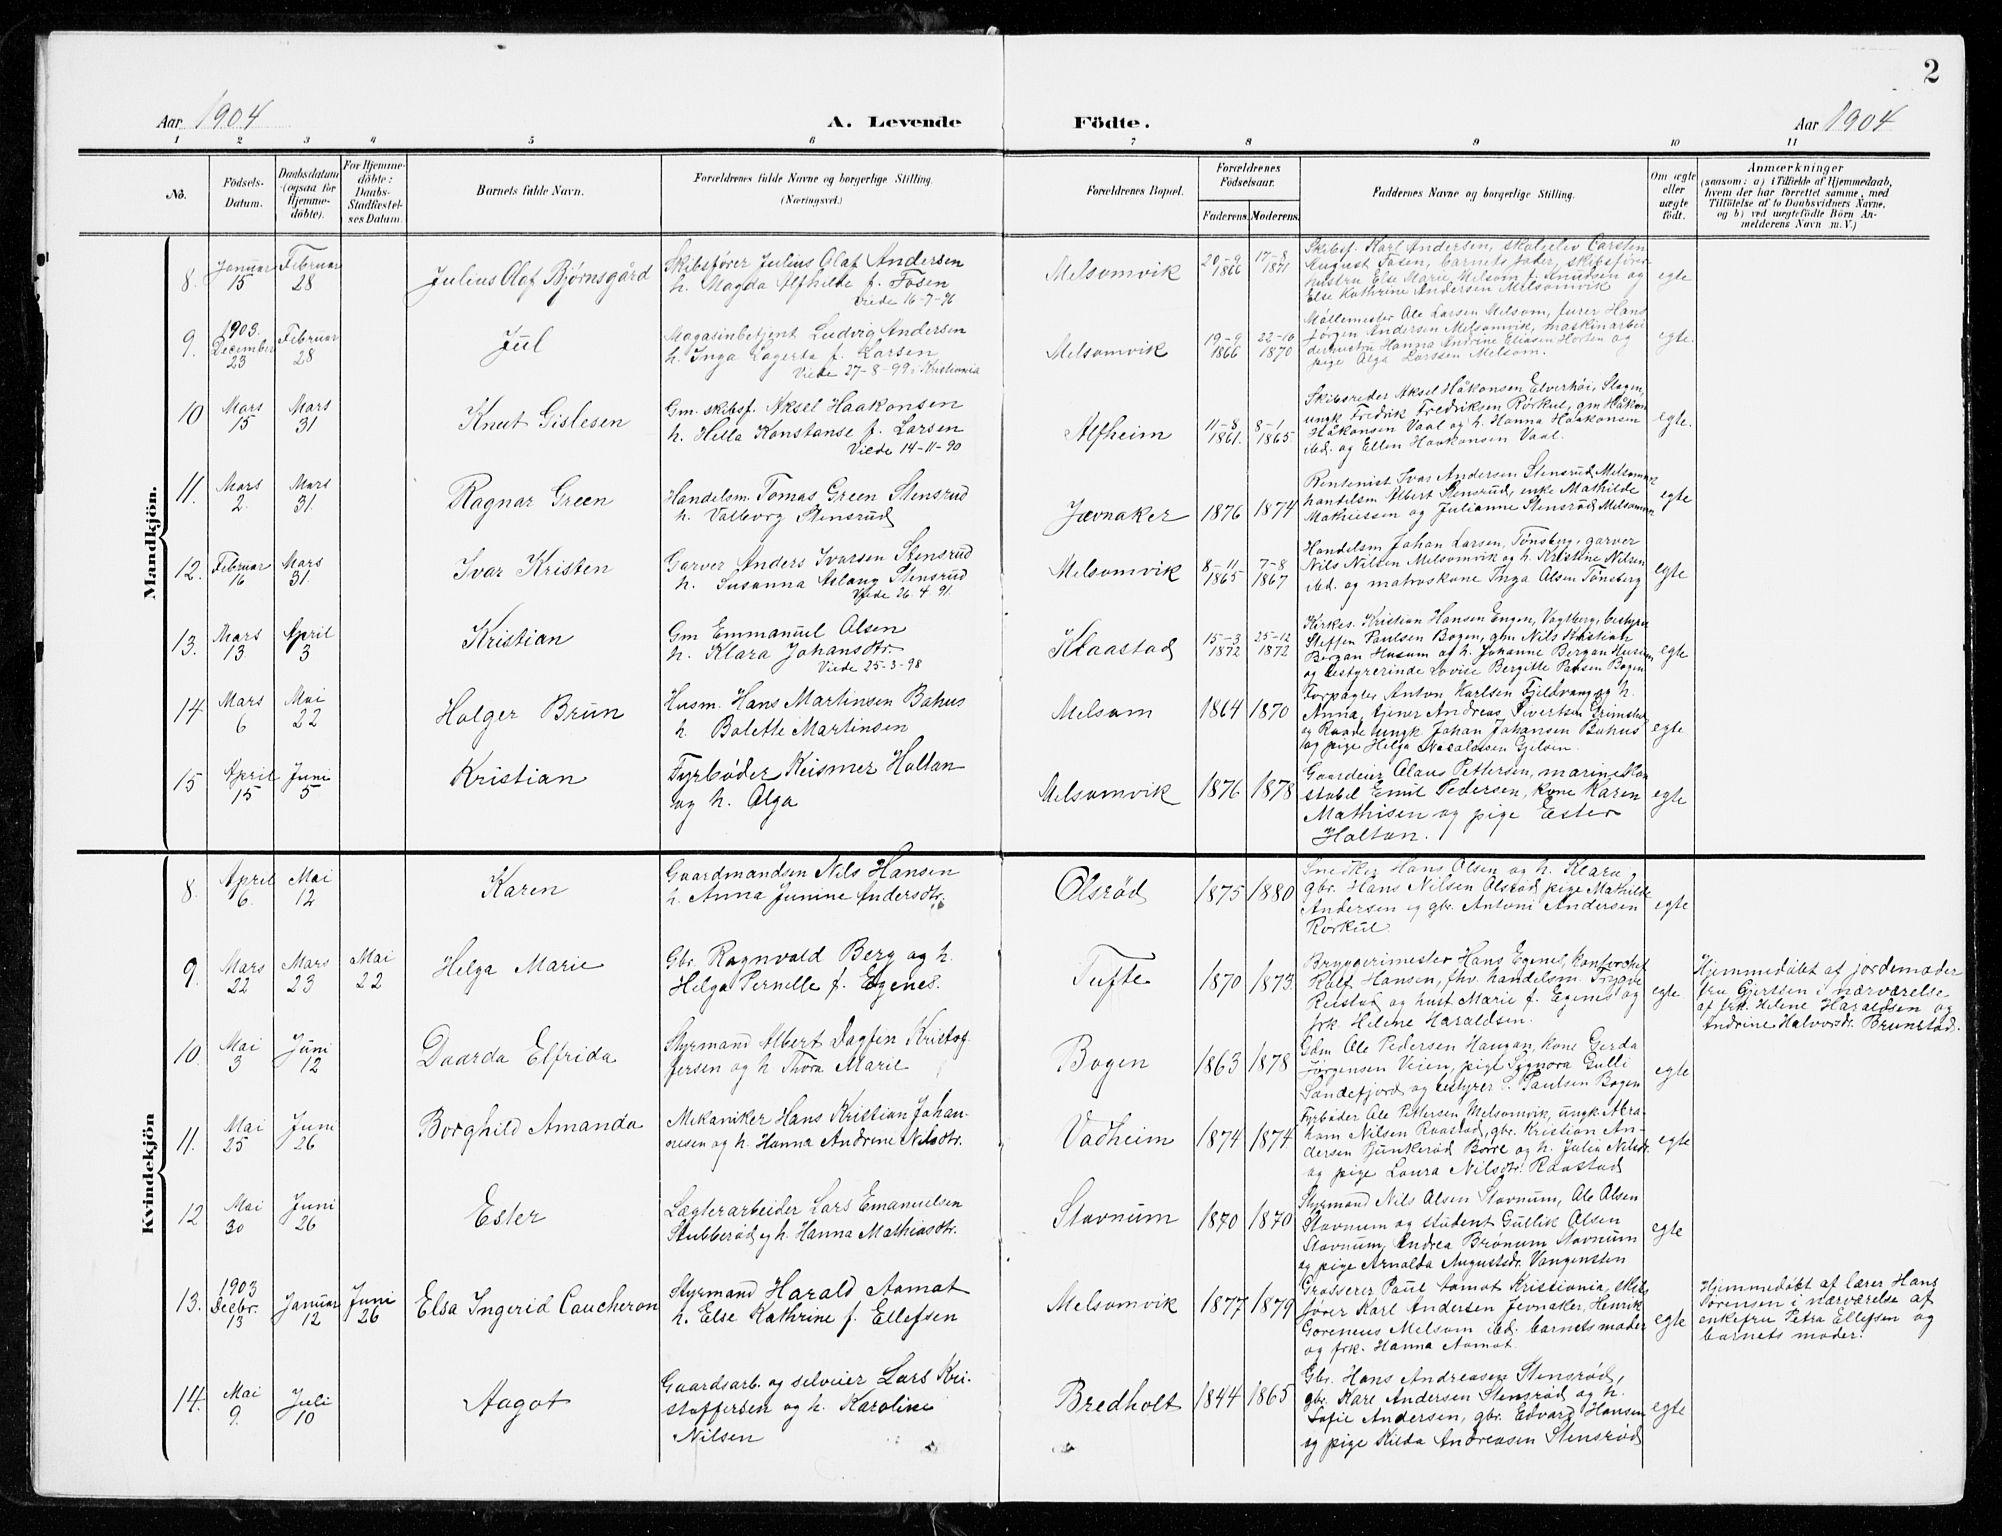 2
Aar 1904
A. Levende
Födte.
Aar 1904
1 2 3 4 5 6 7 8 9 10 11
No.
Födsels-
Datum.
Daabsdatum
(ogsaa för
Hjemme-
döbte).
For Hjemme-
döbte:
Daabs-
Stadfæstel-
ses Datum.
Barnets fulde Navn.
Forældrenes fulde Navne og borgerlige Stilling.
(Næringsvei.)
Forældrenes Bopæl.
Forældrenes
Födselsaar.
Faderens. Moderens.
Faddernes Navne og borgerlige Stilling.
Om ægte
eller
uægte
födt.
Anmærkninger
(saasom: a) i Tilfælde af Hjemmedaab,
hvem der har forrettet samme, med
Tilföielse af to Daabsvidners Navne,
og b) ved uægtefödte Börn An-
melderens Navn m. V.)
Mandkjön.
8.
Januar
15
Februar
28
Julius Olaf Bjørnsgård
Skibsfører Julius Olaf Andersen
h. Magda Alfhilde f. Fosen
Viede 16-7-96
Melsomvik
20-9
1866
17-8
1871
Skibsf. Karl Andersen, skoleelev Carsten
August Fosen, barnets fader, skibsfører
hustru Else Marie Melsom f. Knudsen og
Else Kathrine Andersen Melsomvik
egte
9.
1903.
December
23
Februar
28
Juul
Magasinbetjent Ludvig Andersen
h. Inga Lagerta f. Larsen
Viede 27-8-99 i Kristiania
Melsomvik
19-9
1866
22-10
1870
Møllemester Ole Larsen Melsom, furer Hans
Jørgen Andersen Melsomvik, maskinarbei
derhustru Hanna Andrine Eliasen Horten og
pige Olga Larssen Melsom.
egte.
10
Mars
15
Mars
31
Knut Gislesen
Gm. skibsf. Aksel Haakonsen
h. Hella Konstanse f. Larsen
Viede 14-11-90
Alfheim
11-8
1861.
8-1
1865.
Skibsreder Aksel Håkonsen Elverhøi, Slagen,
ungk Fredrik Fredriksen Rørkul, gm Håkon
Håkonsen Vaal og h. Hanna Haakonsen
ibd. og Ellen Haakonsen Vaal.
egte.
11.
Mars
2.
Mars
31.
Ragnar Green
Handelsm. Tomas Green Stensrud
h. Valborg Stensrud
Jævnaker
1876
1874
Rentenist Ivar Andersen Stensrud Melsomv.
handelsm Albert Stensrud, enke Mathilde
Mathiessen og Julianne Stensrød Melsomv.
egte
12.
Februar
16
Mars
31.
Ivar Kristen
Garver Anders Ivarsen Stensrud
h. Susanna Aslaug Stensrud
Viede 26.4.91.
Melsomvik
8-11
1865
7-8
1867
Handelsm Johan Larsen, Tønsberg, garver
Nils Nilsen Melsomvik og h. Kristine Nilsen
ibd. og matroskone Inga Olsen Tønsberg
egte
13.
Mars
13
April
3
Kristian
Gm Emmanuel Olsen
h. Klara Johansdtr.
Viede 25-3-98
Klaastad
15-3
1872
25-12
1872
Kirkes. Kristian Hansen Engen, Vagtberg, bestyrer
Steffen Paulsen Bogen, gm Nils Kristian
Bergan Husum og h. Johanne Bergan Husum
og bestyrerinde Lovise Bergitte Paulsen Bogen
egte
14
Mars
6
Mai
22
Holger Brun
Husm. Hans Martinsen Bahus
h. Bolette Martinsen
Melsom
1864
1870
Forpagter Anton Karlsen Fjeldvang og h.
Anna, tjener Andreas Sivertsen Grimstad
og Raade ungk Johan Johansen Bahus
og pige Helga
egte
15
April
15
Juni
5
Kristian
Fyrbøder Reismer Holtan
og h. Olga
Melsomvik
1876
1878
Gaardeier Olaus Pettersen, marinekon
stabel Emil Pedersen, kone Karen
Mathisen og pige Ester
Holtan.
egte
Kvindekjön
8.
April
6.
Mai
12
Karen
Gaardmandsen Nils Hansen
h. Anna Junine Andersdtr.
Olsrød
1875
1880
Snedker Hans Olsen og h. Klara
gbr. Hans Nilsen Olsrød, pige Mathilde
Andersen og gbr. Antoni Andersen
Rørkul.
egte
9.
Mars
22
Mars
23
Mai
22
Helga Marie
Gbr. Ragnvald Berg og h.
Helga Pernelle f. Egenes.
Tufte
1870
1873.
Bryggerimester Hans Egenes, kontorchef
Ralf Hansen, fhv. handelsm. Trygve
Reistad og hust Marie f. Egenes og
frk. Helene Haraldsen.
egte
Hjemmedøbt af jordemoder
fru Gjertsen i nærværelse
af frk. Helene Haraldsen og
Andrine Halvorsdr. Brunstad.
10.
Mai
3
Juni
12
Daarda Elfrida
Styrmand Albert Dagfin Kristof
fersen og h. Thora Marie
Bogen
1863
1878
Gdm Ole Pedersen Haugan, kone Gerda
Jørgensen Veien, pige Signora Gulli
Sandefjord og bestyrer S. Paulsen Bogen
egte
11.
Mai
25
Juni
26
Borghild Amanda
Mekaniker Hans Kristian Johan-
nesen og h. Hanna Andrine Nilsdtr.
Vadheim
1874
1874.
Fyrbøder Ole Pettersen Melsomvik, ungk. Abra
ham Nilsen Raastad, gbr. Kristian An-
dersen Bjunkerød Borre og h. Julia Nilsdr.
og pige Laura Nilsdtr. Raastad
egte
12
Mai
30
Juni
26
Ester
Lægterarbeider Lars Emanuelsen
Stubberød og h. Hanna Mathiasdtr.
Stavnum
1870
1870
Styrmand Nils Olsen Stavnum, Ole Olsen
Stavnum og student Gullik Olsen
Stavnum, Andrea Brønum Stavnum
og pige Arnolda Augustsdr. Vangensten
egte
13.
1903
Decbr.
13
Januar
12
Juni
26
Elsa Ingerid Caucheron
Styrmand Harald Aamot
h. Else Kathrine f. Ellefsen
Melsomvik
1877
1879
Grosserer Paul Aamot Kristiania, skibs
fører Karl Andersen Jevnaker, Henrik
Gorenius Melsom ibd. barnets moder
og frk. Hanna Aamot.
egte
Hjemmedøbt af lærer Hans
Sørensen i nærværelse af
enkefru Petra Ellefsen og
barnets moder.
14.
Mai
9.
Juli
10
Aagot
Gaardsarb. og selveier Lars Kri-
stoffersen og h. Karoline
Nilsen
Bredholt
1844
1865
Gbr. Hans Andreasen Stensrød,
gbr. Karl Andersen Stensrød og h.
Sofie Andersen, gbr. Edvard Hansen
og pige Hilda Andreasen Stensrød
egte